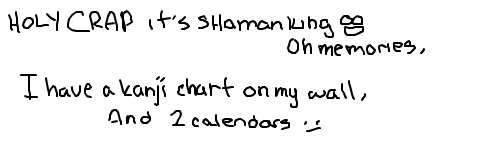 HOLY CRAP it's SHaman king
Oh memories,
I have a kanji chart on my wall,
And 2 calendars :)